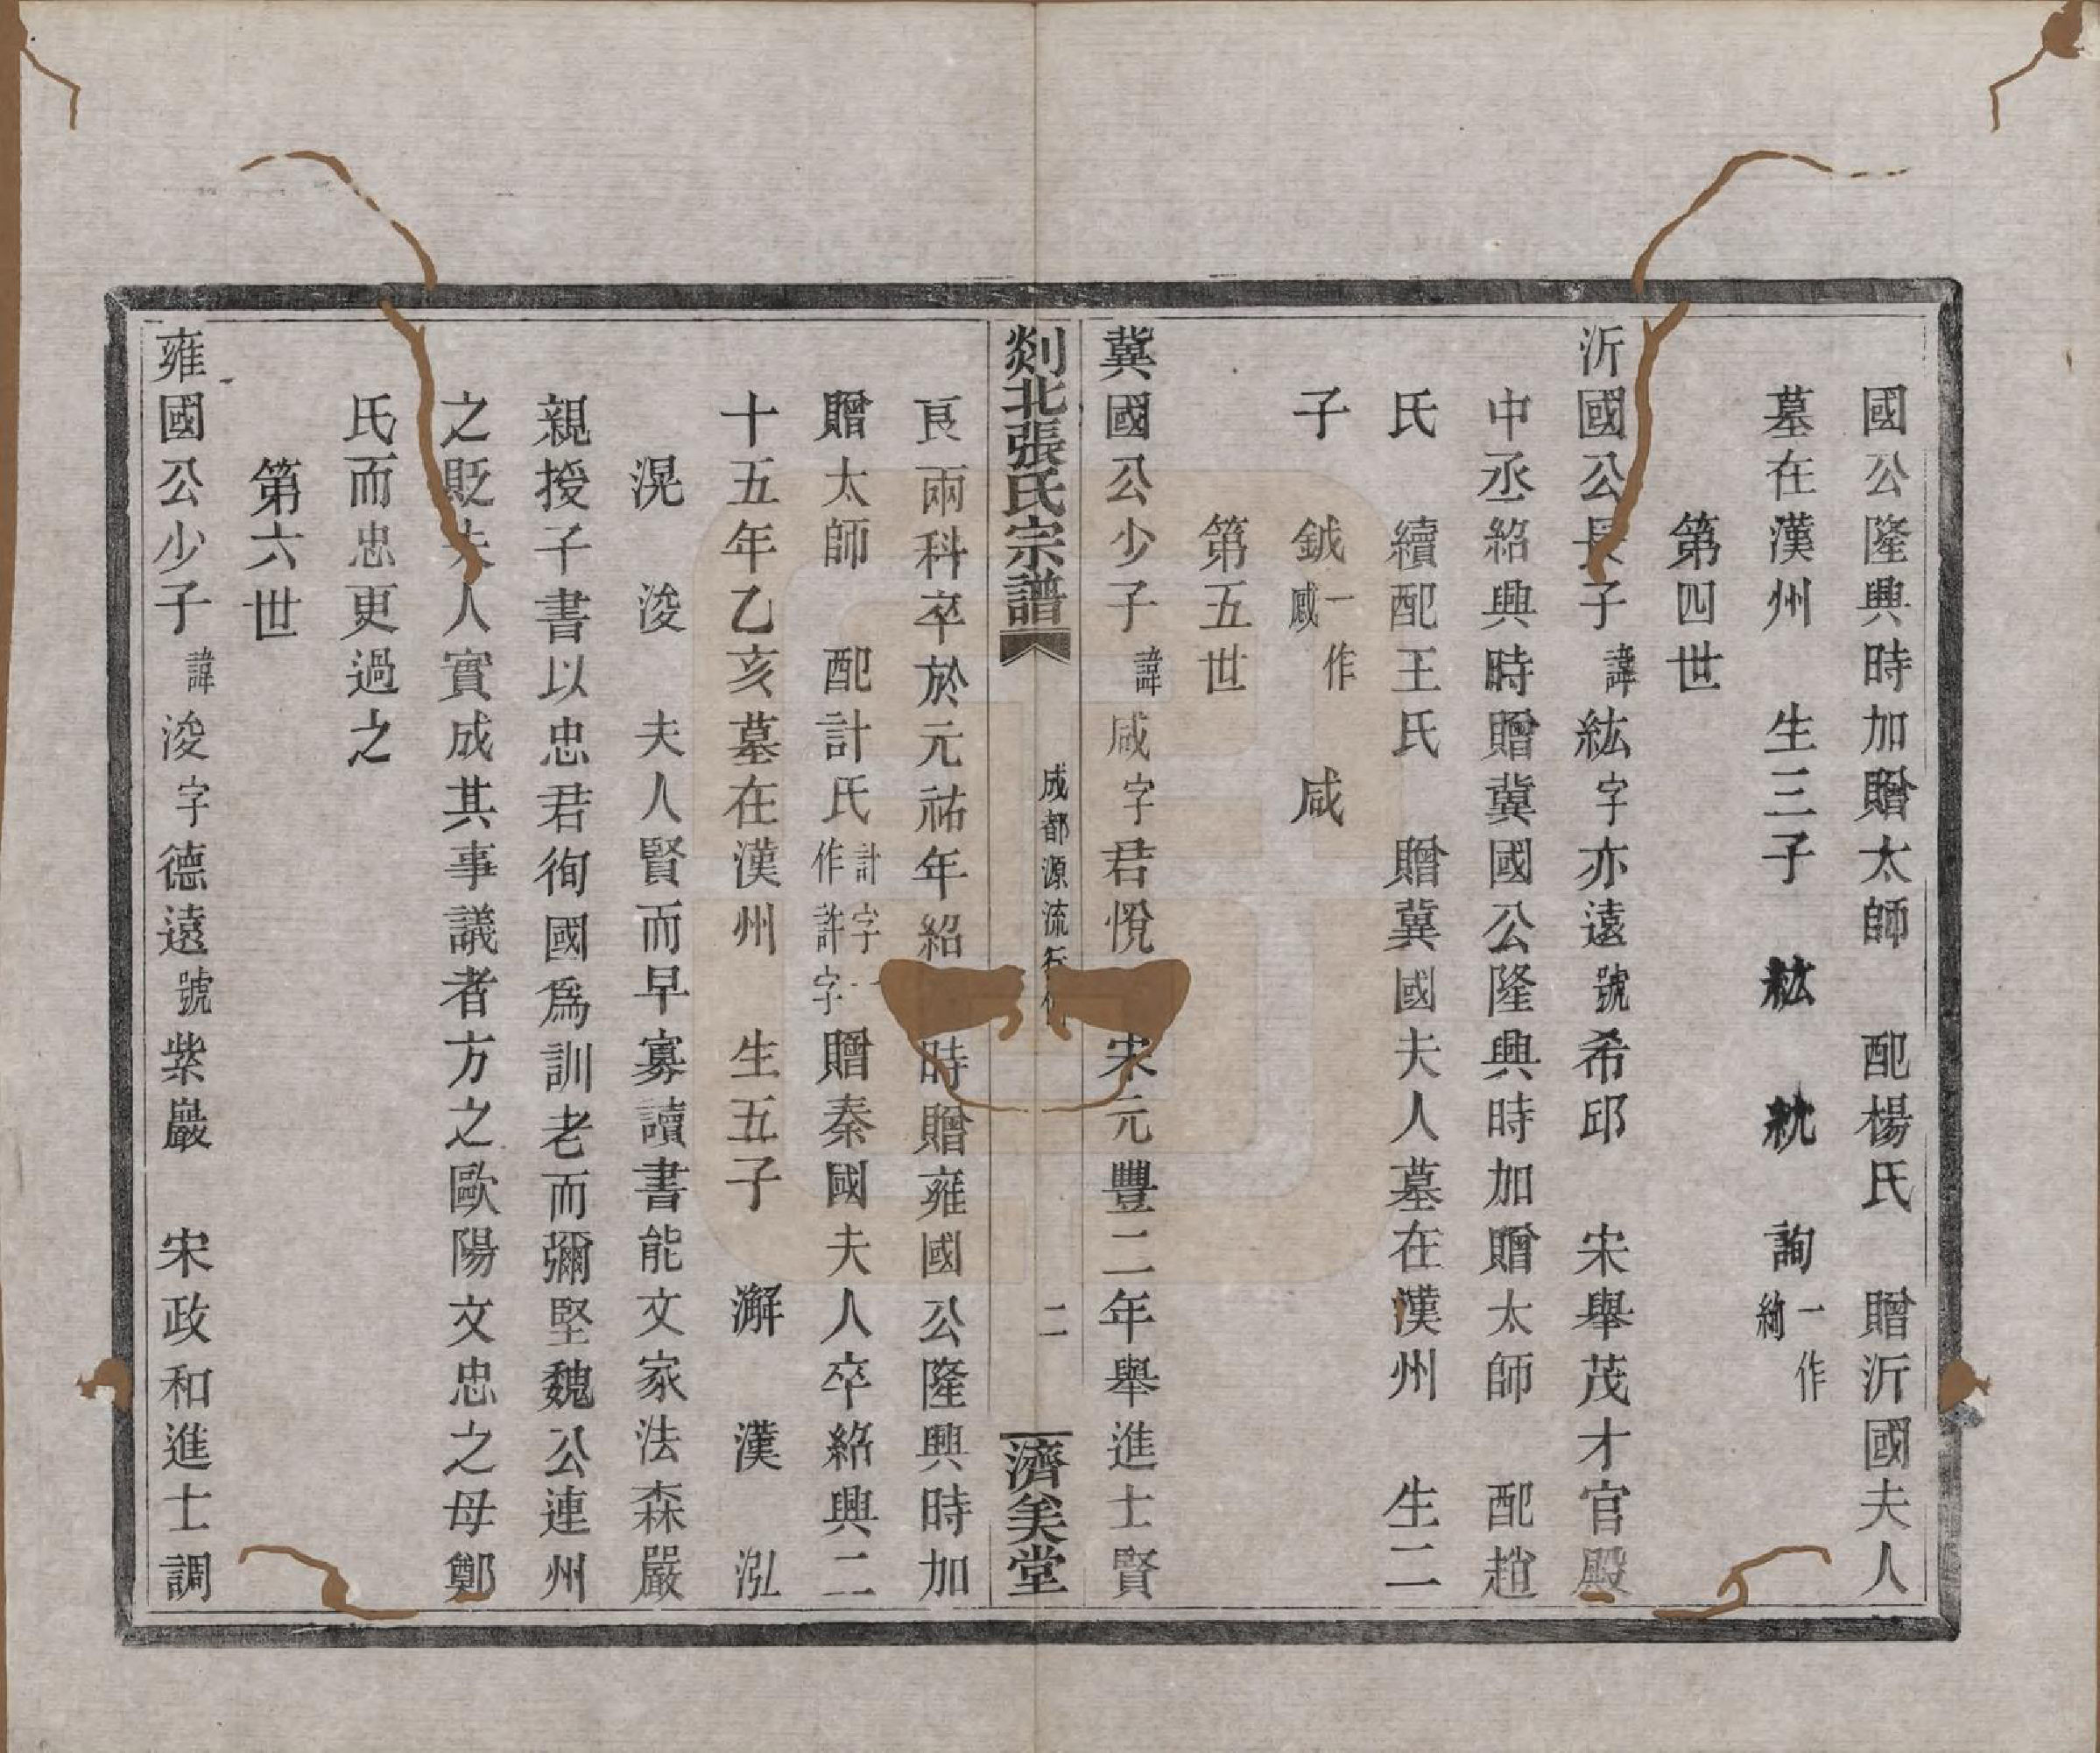 國公隆興時加贈太師　配楊氏　贈沂國夫人
墓在漢州　生三子　紘　𥿎　詢一作絢
第四世
沂國公長子諱紘字亦遠號希邱　宋舉茂才官殿
中丞紹興時贈冀國公隆興時加贈太師　配趙
氏　續配王氏　贈冀國夫人墓在漢州　生二
子　鉞一作鏚　咸
第五世
冀國公少子諱咸字君悅　宋元豐二年舉進士賢
剡北張氏宗譜　成都源流　二　濟美堂
良兩科卒於元祐年紹　時贈雍國公隆興時加
贈太師　配計氏計字一作許字贈秦國夫人卒紹興二
十五年乙亥墓在漢州　生五子　澥　漢　泓
滉　浚　夫人賢而早寡讀書能文家法森嚴
親授子書以忠君徇國爲訓老而彌堅魏公連州
之貶夫人實成其事議者方之歐陽文忠之母鄭
氏而忠更過之
第六世
雍國公少子諱浚字德遠號紫巖　宋政和進士調